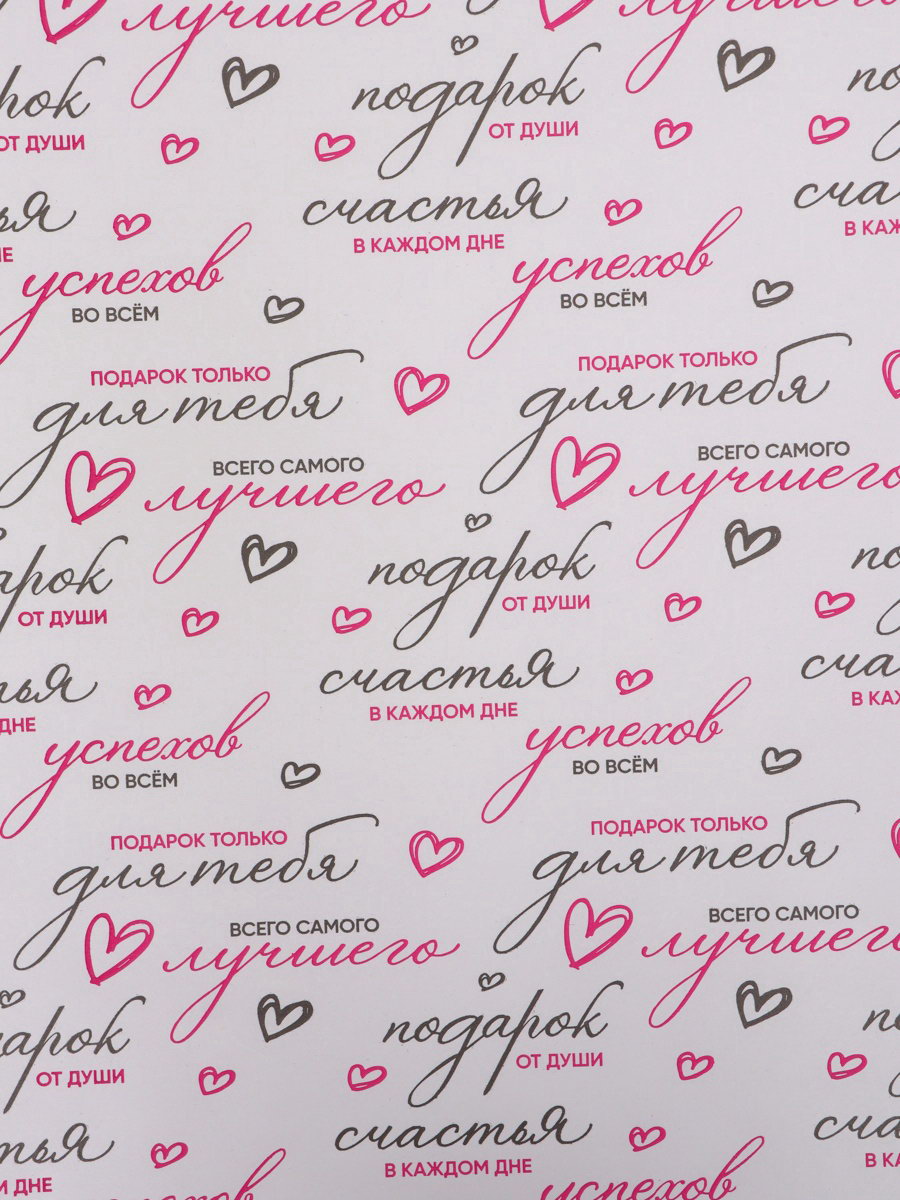 лучшего
лучшего
подарок
ОТ ДУШИ
ОТ ДУШИ
счастья
В КАЖДОМ ДНЕ
успехов
ВО ВСЁМ
успехов
ВО ВСЁМ
ПОДАРОК ТОЛЬКО
для тебя
ПОДАРОК ТОЛЬКО
для тебя
ВСЕГО САМОГО
лучшего
ВСЕГО САМОГО
лучшего
подарок
ОТ ДУШИ
ОТ ДУШИ
счастья
В КАЖДОМ ДНЕ
ДНЕ
успехов
ВО ВСЁМ
успехов
ВО ВСЁМ
ПОДАРОК ТОЛЬКО
для тебя
ПОДАРОК ТОЛЬКО
для тебя
ВСЕГО САМОГО
лучшего
ВСЕГО САМОГО
лучшего
подарок
ОТ ДУШИ
ОТ ДУШИ
счастья
В КАЖДОМ ДНЕ
ДНЕ
успехов